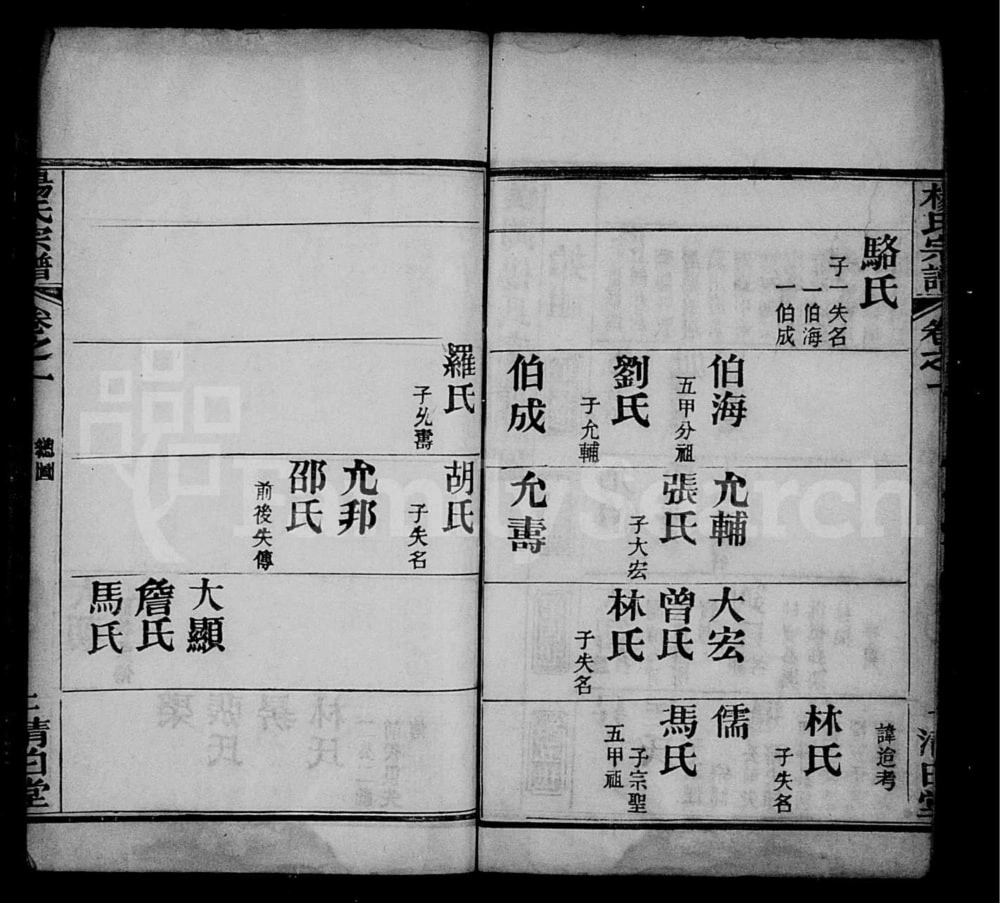 楊氏宗譜
卷之一
清白堂
駱氏
子一失名
一伯海
一伯成
伯海
五甲分祖
劉氏
子允輔
伯成
允輔
張氏
子大宏
允壽
大宏
曾氏
林氏
子失名
諱迨考
林氏
子失名
儒
馬氏
子宗聖
五甲祖
羅氏
子允壽
胡氏
子失名
允邦
邵氏
前後失傳
大顯
詹氏
馬氏
楊氏宗譜
卷之一
總圖
二
清白堂
FamilySearch